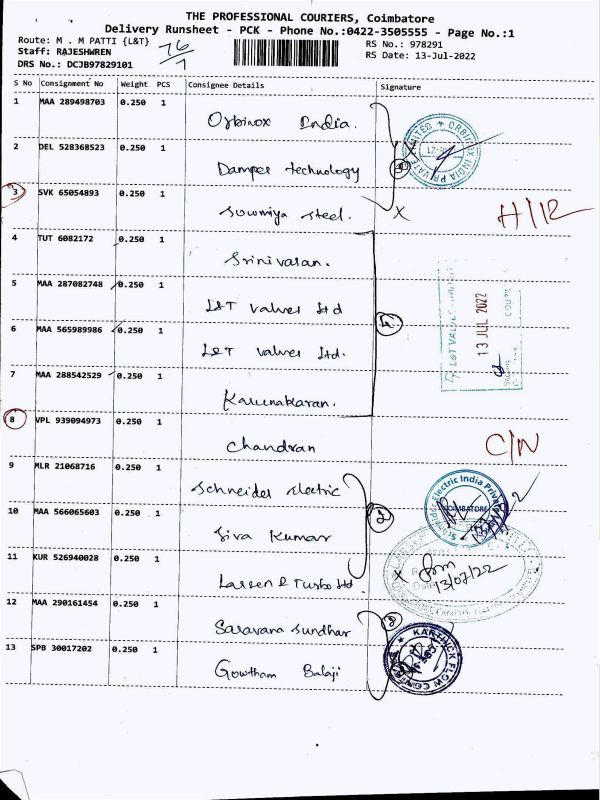 THE PROFESSIONAL COURIERS, Coimbatore
Delivery Runsheet - PCK - Phone No.:0422-3505555 - Page No.:1
Route: M . M PATTI {L&T}
RS No.: 978291
Staff: RAJESHWREN
RS Date: 13-Jul-2022
DRS No.: DCJB97829101
76/1
S No Consignment No Weight PCS Consignee Details Signature
1 MAA 289498703 0.250 1
Orbinox India.
2 DEL 528368523 0.250 1
Damper technology
3 SVK 65054893 0.250 1
Sowmiya Steel.
H/12
4 TUT 6082172 0.250 1
Srinivasan.
5 MAA 287082748 0.250 1
L&T Valves ltd
6 MAA 565989986 0.250 1
L&T Valves ltd.
13 JUL 2022
7 MAA 288542529 0.250 1
Karunakaran.
8 VPL 939094973 0.250 1
Chandran
C/N
9 MLR 21068716 0.250 1
Schneider Electric
10 MAA 566065603 0.250 1
Siva Kumar
COIMBATORE
11 KUR 526940028 0.250 1
Larsen & Turbo ltd
13/07/22
12 MAA 290161454 0.250 1
Saravana Sundhar
13 SPB 30017202 0.250 1
Gowtham Balaji